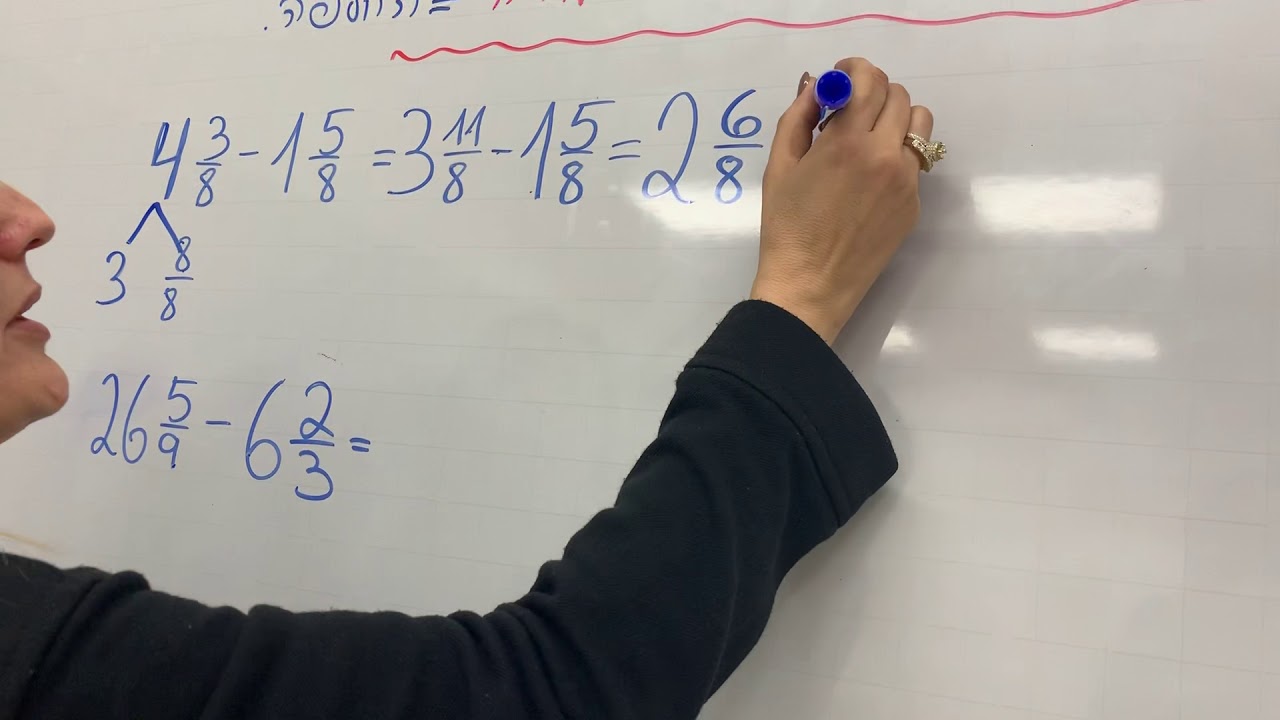 4 3/8 - 1 5/8 = 3 11/8 - 1 5/8 = 2 6/8
3 8/8
26 5/9 - 6 2/3 =